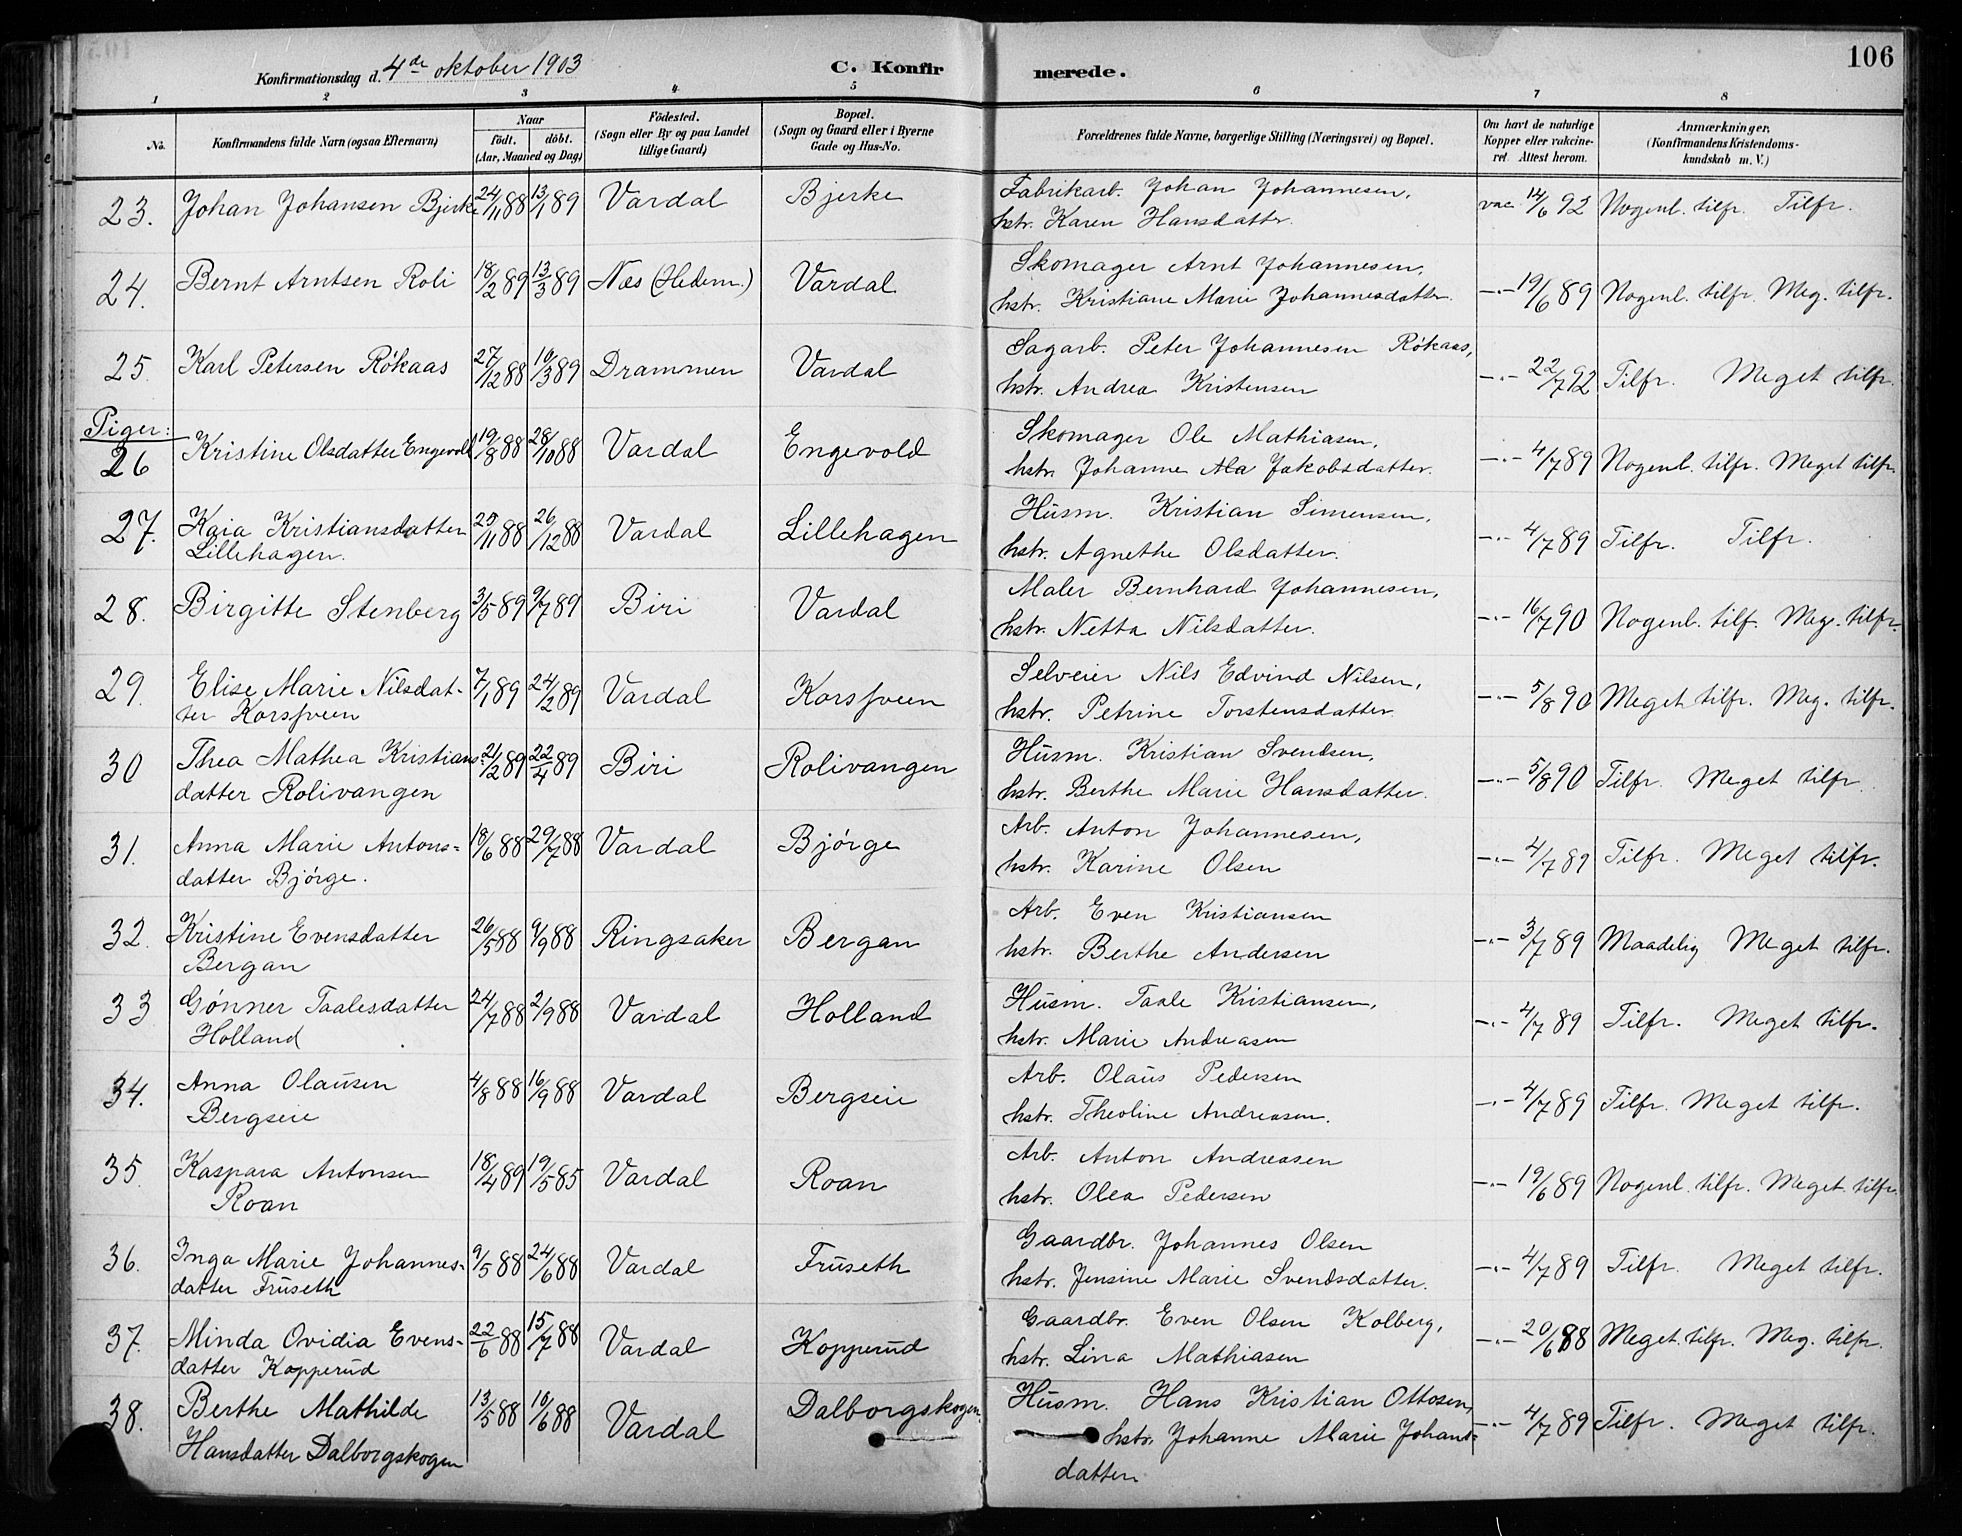 106
Konfirmationsdag d. 4de oktober 1903 C. Konfirmerede.
1 2 3 4 5 6 7 8
No. Konfirmandens fulde Navn (ogsaa Efternavn) Naar födt. döbt. (Aar, Maaned og Dag) Födested. (Sogn eller By og paa Landet tillige Gaard) Bopæl. (Sogn og Gaard eller i Byerne Gade og Hus-No. Forældrenes fulde Navne, borgerlige Stilling (Næringsvei) og Bopæl. Om havt de naturlige Kopper eller vakcineret. Attest herom. Anmærkninger. (Konfirmandens Kristendomskundskab m. V.)
23. Johan Johansen Bjerke 24/11 88 13/1 89 Vardal Bjerke Fabrikarb. Johan Johannesen, vac. 14/6 92 Nogenl. tilfr. Tilfr.
hstr. Karen Hansdatter.
24. Bernt Arntsen Roli 18/2 89 13/3 89 Næs (Hedem.) Vardal Skomager Arnt Johannesen, -"- 19/6 89 Nogenl. tilfr. Meg. tilfr.
hstr. Kristiane Marie Johannesdatter.
25. Karl Petersen Rökaas 27/12 88 10/3 89 Drammen Vardal Sagarb. Peter Johannesen Rökaas, -"- 22/7 92 Tilfr. Meget tilfr.
hstr. Andrea Kristensen
Piger:
26 Kristine Olsdatter Engevold 19/8 88 28/10 88 Vardal Engevold Skomager Ole Mathiasen, -"- 4/7 89 Nogenl. tilfr. Meget tilfr.
hstr. Johanne Jakobsdatter.
27. Kaia Kristiansdatter 25/11 88 26/12 88 Vardal Lillehagen Husm. Kristian Simensen, -"- 4/7 89 Tilfr. Tilfr.
Lillehagen. hstr. Agnethe Olsdatter.
28. Birgitte Stenberg 3/5 89 9/7 89 Biri Vardal Maler Bernhard Johannesen, -"- 16/7 90 Nogenl. tilf. Meg. tilfr.
hstr. Netta Nilsdatter.
29. Elise Marie Nilsdat- 7/1 89 24/2 89 Vardal Korsfveen Selveier Nils Edvind Nilsen, -"- 5/8 90 Meget tilfr. Meg. tilfr.
ter Korsfveen hstr. Petrine Torstensdatter.
30 Thea Mathea Kristians- 21/2 89 22/4 89 Biri Rolivangen Husm. Kristian Svendsen, -"- 5/8 90 Tilfr. Meget tilfr
datter Rolivangen hstr. Berthe Marie Hansdatter.
31. Anna Marie Antons- 18/6 88 29/7 88 Vardal Bjørge Arb. Anton Johannesen, -"- 4/7 89 Tilfr. Meget tilfr.
datter Bjørge. hstr. Karine Olsen
32. Kristine Evensdatter 26/5 88 9/9 88 Ringsaker Bergan Arb. Even Kristiansen -"- 3/7 89 Maadelig Meget tilfr.
Bergan hstr. Berthe Andersen
33 Gønner Taalesdatter 24/7 88 2/9 88 Vardal Holland Husm. Taale Kristiansen, -"- 4/7 89 Tilfr. Meget tilfr.
Holland hstr. Marie Andreasen
34. Anna Olausen 4/8 88 16/9 88 Vardal Bergseie Arb. Olaus Pedersen -"- 4/7 89 Tilfr. Meget tilfr.
Bergseie hstr. Theoline Andreasen.
35. Kaspara Antonsen 18/4 89 19/5 85 Vardal Roan Arb. Anton Andreasen -"- 19/6 89 Nogenl. tilfr. Meget tilfr.
Roan hstr. Olea Pedersen
36. Inga Marie Johannes- 9/5 88 24/6 88 Vardal Fruseth Gaardbr. Johannes Olsen -"- 4/7 89 Tilfr. Meget tilfr.
datter Fruseth hstr. Jensine Marie Svendsdatter.
37. Minda Ovidia Evens- 22/6 88 15/7 88 Vardal Kopperud Gaardbr. Even Olsen Kolberg, -"- 20/6 88 Meget tilfr. Meg. tilfr.
datter Kopperud hstr. Lina Mathiasen
38. Berthe Mathilde 13/5 88 10/6 88 Vardal Dalborgskogen Husm. Hans Kristian Ottosen, -"- 4/7 89 Tilfr. Meget tilfr.
Hansdatter Dalborgskogen hstr. Johanne Marie Johans-
datter.